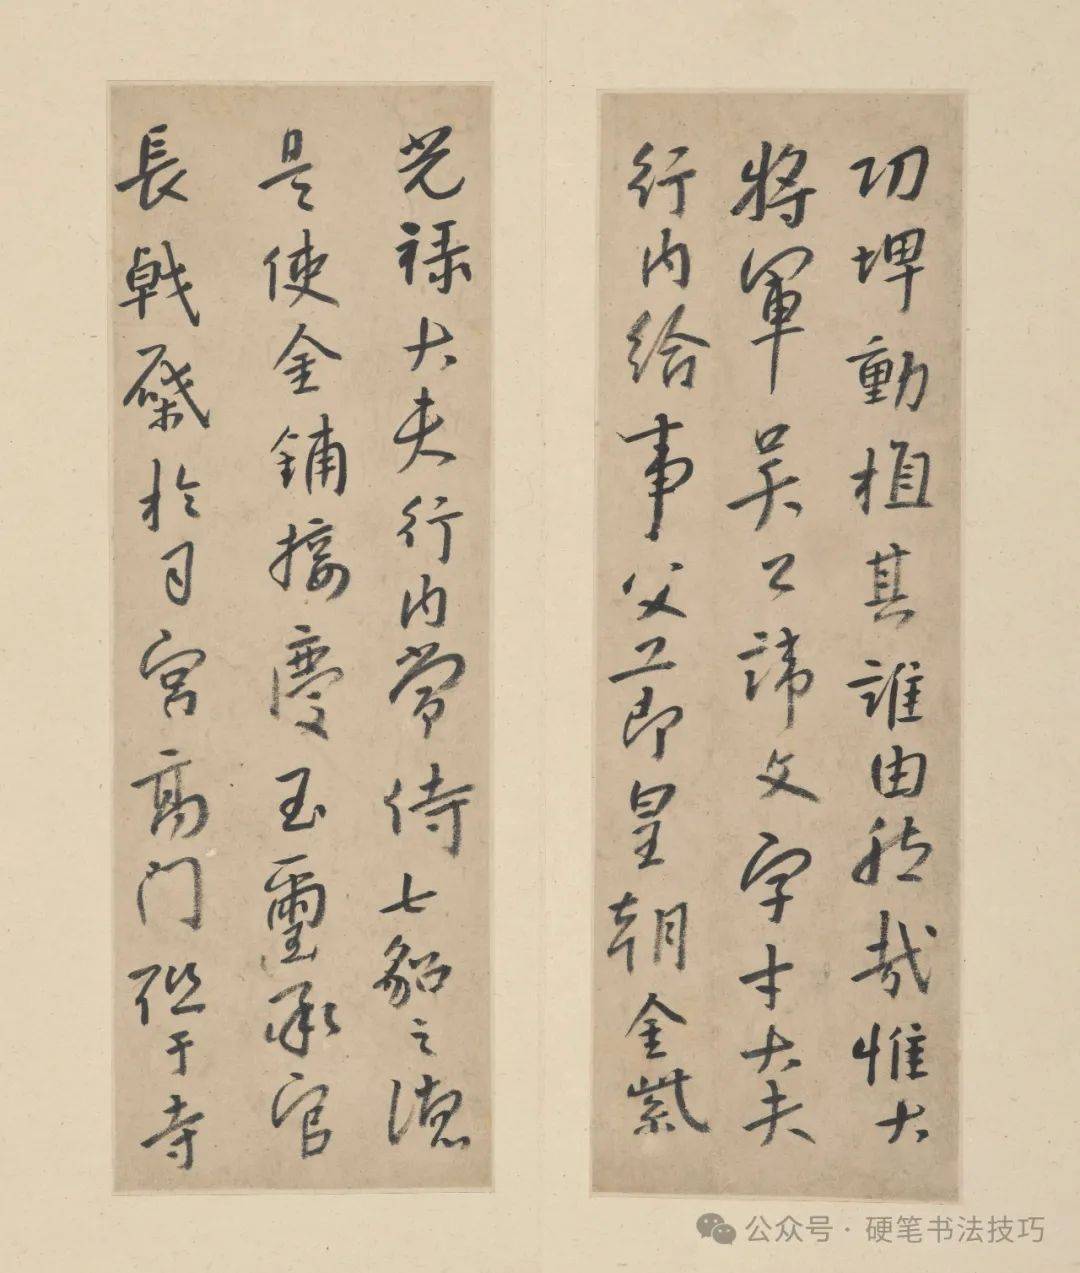 功埤動植其誰由然哉惟大
將軍吴公諱文字才大夫
行内給事父公即皇朝金紫
光禄大夫行内常侍七貂之德
是使金鋪接慶玉璽承官
長戟棨於司宮高門碓于寺
公众号·硬笔书法技巧